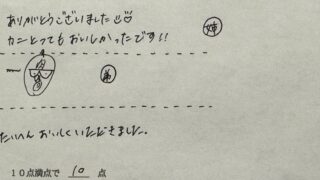 ありがとうございました
カニとってもおいしかったです!! 姉
弟
たいへんおいしくいただきました。
10点満点で 10 点